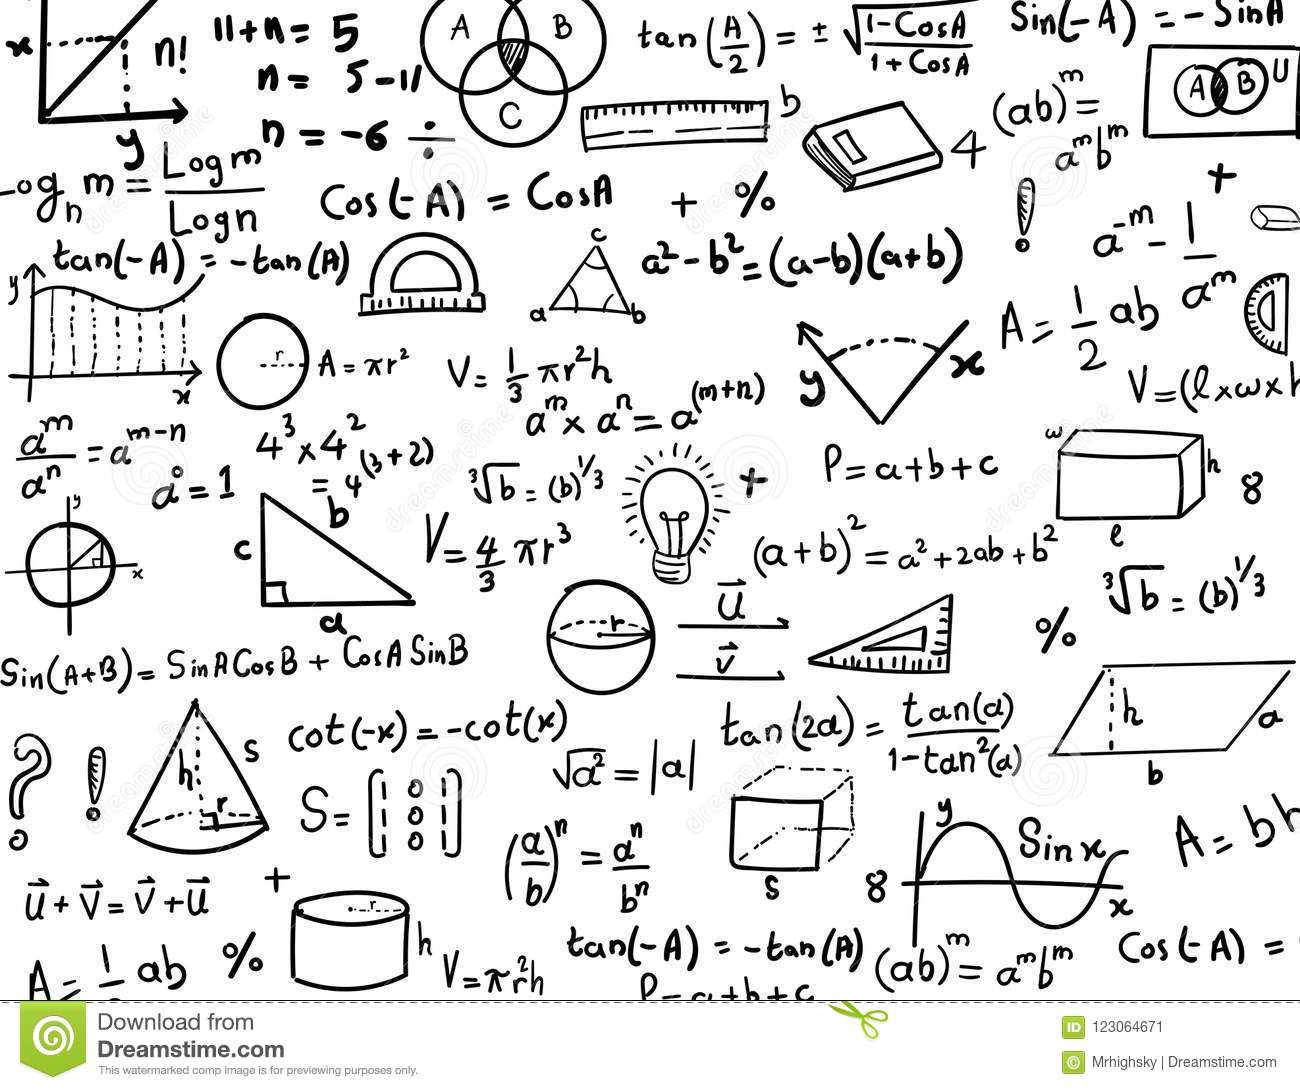 11+n= 5
n= 5-11
n = -6 ÷
A B
C
tan(A/2) = ± √(1-CosA/1+CosA)
Sin(-A) = - SinA
A B U
x n!
y
b
4
(ab)ᵐ =
aᵐbᵐ
Log m
m = ———
Log n
Cos(-A) = CosA + %
+
a⁻ᵐ - 1/aᵐ
tan(-A) = -tan(A)
a² - b² = (a-b)(a+b)
c
a b
y
x
r A = πr²
V = 1/3 πr²h
y x
A = 1/2 ab
V = (l x w x h
aᵐ x aⁿ = a⁽ᵐ⁺ⁿ⁾
aᵐ/aⁿ = aᵐ⁻ⁿ
a° = 1
4³ x 4²
= 4⁽³⁺²⁾
³√b = (b)^1/3
+
P = a + b + c
w h 8
l
y
x
b
c
a
V = 4/3 πr³
(a+b)² = a² + 2ab + b²
³√b = (b)^1/3
r
u⃗
v⃗
%
Sin(A+B) = SinA CosB + CosA SinB
h a
b
? !
h s
r
cot(-x) = -cot(x)
√a² = |a|
tan(2a) = tan(a)/1-tan²(a)
S =
(a/b)ⁿ = aⁿ/bⁿ
s
8
y
Sin x
x
A = bh
u⃗ + v⃗ = v⃗ + u⃗
+
r
h
V = πr²h
A = 1 ab
%
tan(-A) = -tan(A)
(ab)ᵐ = aᵐbᵐ
Cos(-A) =
P = a+b+c
Download from
Dreamstime.com
This watermarked comp image is for previewing purposes only.
ID 123064671
© Mrhighsky | Dreamstime.com